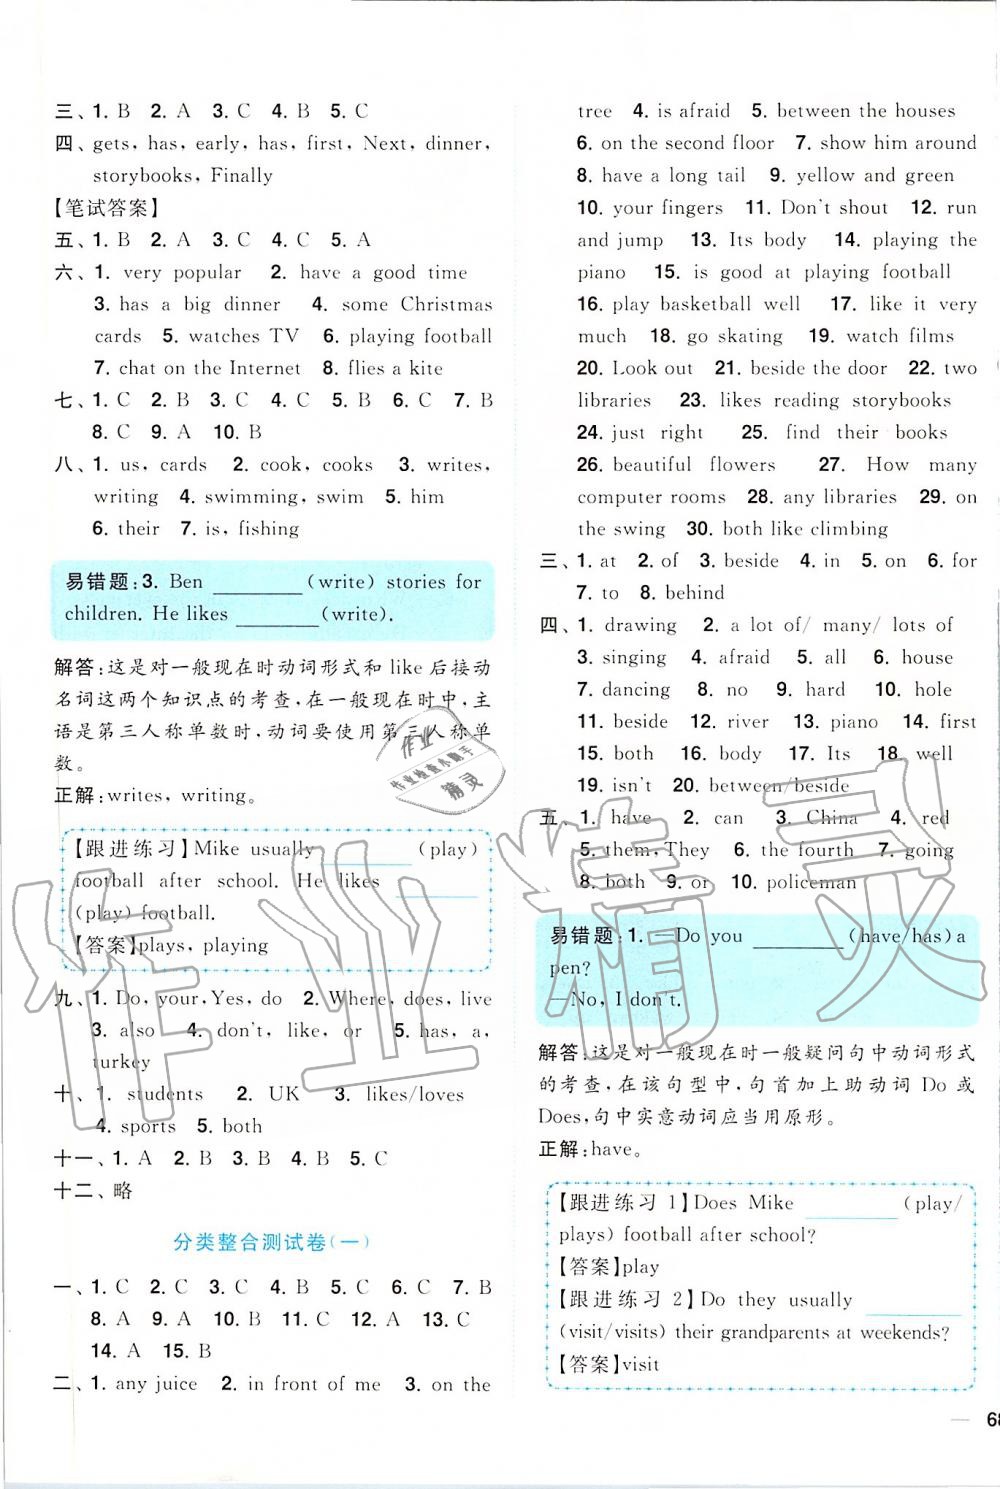 三、1. B 2. A 3. C 4. B 5. C
四、gets, has, early, has, first, Next, dinner,
storybooks, Finally
【笔试答案】
五、1. B 2. A 3. C 4. C 5. A
六、1. very popular 2. have a good time
3. has a big dinner 4. some Christmas
cards 5. watches TV 6. playing football
7. chat on the Internet 8. flies a kite
七、1. C 2. B 3. C 4. C 5. B 6. C 7. B
8. C 9. A 10. B
八、1. us, cards 2. cook, cooks 3. writes,
writing 4. swimming, swim 5. him
6. their 7. is, fishing
易错题:3. Ben ________ (write) stories for
children. He likes ________ (write).
解答:这是对一般现在时动词形式和 like 后接动
名词这两个知识点的考查,在一般现在时中,主
语是第三人称单数时,动词要使用第三人称单
数。
正解:writes, writing。
【跟进练习】Mike usually ________ (play)
football after school. He likes ________
(play) football.
【答案】plays, playing
九、1. Do, your, Yes, do 2. Where, does, live
3. also 4. don't, like, or 5. has, a,
turkey
十、1. students 2. UK 3. likes/loves
4. sports 5. both
十一、1. A 2. B 3. B 4. A 5. C
十二、略
分类整合测试卷(一)
一、1. C 2. C 3. C 4. B 5. C 6. C 7. B
8. A 9. A 10. B 11. C 12. A 13. C
14. A 15. B
二、1. any juice 2. in front of me 3. on the
tree 4. is afraid 5. between the houses
6. on the second floor 7. show him around
8. have a long tail 9. yellow and green
10. your fingers 11. Don't shout 12. run
and jump 13. Its body 14. playing the
piano 15. is good at playing football
16. play basketball well 17. like it very
much 18. go skating 19. watch films
20. Look out 21. beside the door 22. two
libraries 23. likes reading storybooks
24. just right 25. find their books
26. beautiful flowers 27. How many
computer rooms 28. any libraries 29. on
the swing 30. both like climbing
三、1. at 2. of 3. beside 4. in 5. on 6. for
7. to 8. behind
四、1. drawing 2. a lot of/ many/ lots of
3. singing 4. afraid 5. all 6. house
7. dancing 8. no 9. hard 10. hole
11. beside 12. river 13. piano 14. first
15. both 16. body 17. Its 18. well
19. isn't 20. between/beside
五、1. have 2. can 3. China 4. red
5. them, They 6. the fourth 7. going
8. both 9. or 10. policeman
易错题:1. —Do you ________ (have/has) a
pen?
—No, I don't.
解答:这是对一般现在时一般疑问句中动词形式
的考查,在该句型中,句首加上助动词 Do 或
Does,句中实意动词应当用原形。
正解:have。
【跟进练习 1】Does Mike ________ (play/
plays) football after school?
【答案】play
【跟进练习 2】Do they usually ________
(visit/visits) their grandparents at weekends?
【答案】visit
— 68
作业
作业检查小助手
精灵
作业精灵